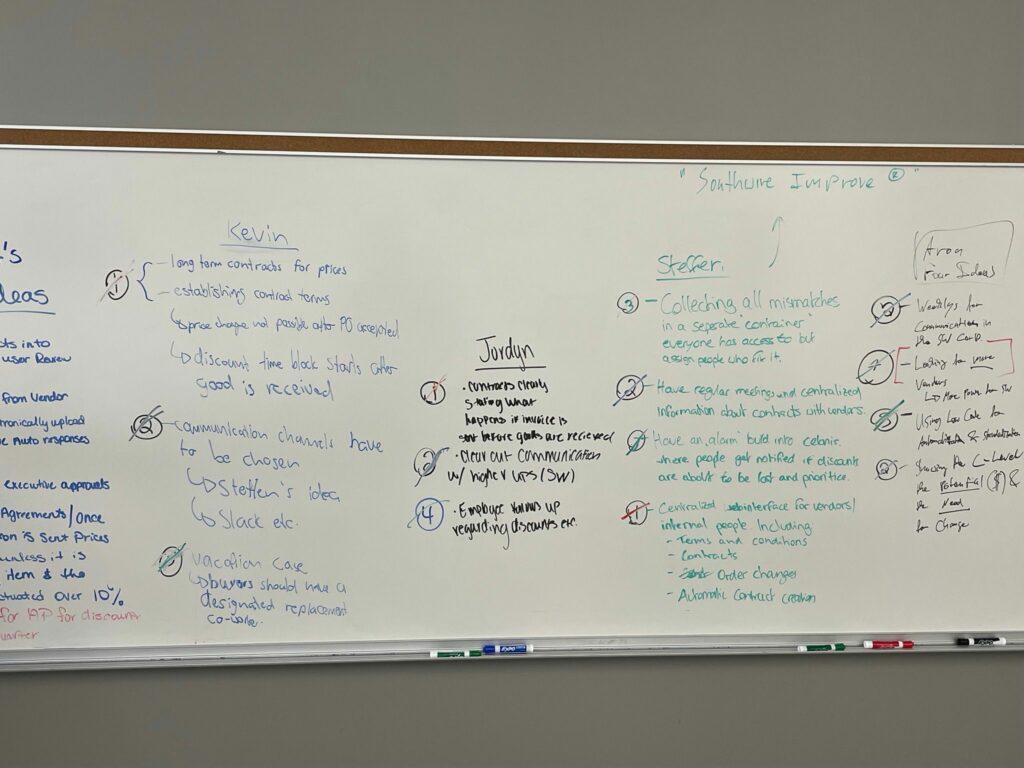 "Southwire Improve ®"
's
deas
ts into
user Review
from Vendor
ronically upload
Auto responses
executive approvals
Agreements/Once
on is Sent Prices
unless it is
item & the
ctuated over 10%
for AP for discount
Kevin
1 - long term contracts for prices
- establishing contract terms
↳ price change not possible after PO accepted
↳ discount time block starts after
good is received
2 - communication channels have
to be chosen
↳ Steffen's idea
↳ Slack etc.
vacation case
↳ buyers should have a
designated replacement
Jordyn
1 • contracts clearly
stating what
happens if invoice is
sent before goods are recieved
2 • Clear cut communication
w/ higher ups (SW)
4 • Employee
regarding discounts etc.
Steffen.
3 - Collecting all mismatches
in a seperate "container"
everyone has access to but
assign people who fix it.
2 - Have regular meetings and centralized
information about contracts with vendors.
Have an "alarm" build into celonis
where people get notified if discounts
are about to be lost and prioritize.
1 - Centralized interface for vendors/
internal people. Including
- Terms and conditions
- Contracts
- Order changes
- Automatic Contract creation
Aron
Four Ideas
for
Communication in
the
- Looking for more
Vendors
↳ More Power for SW
- Using Low Code for
Automatization & Standardization
2 - Showing the C-Level
the Potential ($) &
the Need
for Change
EXPO
EXPO